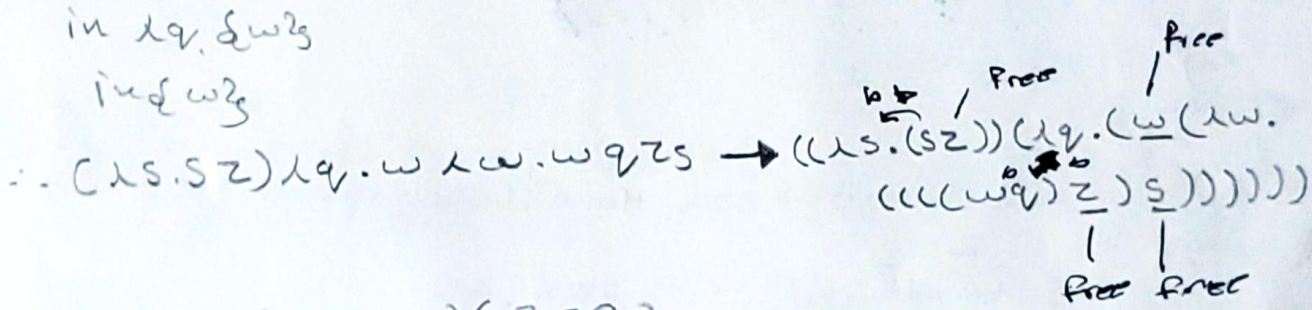 in λq. {w}
in {w}
∴ (λs.sz)λq.wλw.wqzs → ((λs.(sz))(λq.(w(λw.
((((wq)z)s))))))
b b
free
free
b
b
free free